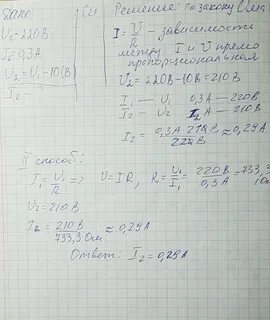 Дано: Си Решение: по закону Ома
U₁=220В I=U/R - зависимость
I₁=0,3А между I и U прямо
U₂=U₁-10(В) пропорциональная
I₂ - U₂=220В-10В=210В
I₁ — U₁ 0,3А — 220В
I₂ — U₂ I₂А — 210В
I₂ = 0,3А·210В/220В ≈ 0,29А
II способ:
I₁=U₁/R => U=IR, R=U₁/I₁=220В/0,3А=733,3 Ом
U₂=210В
I₂ = 210В/733,3Ом ≈ 0,29А
Ответ: I₂=0,29А